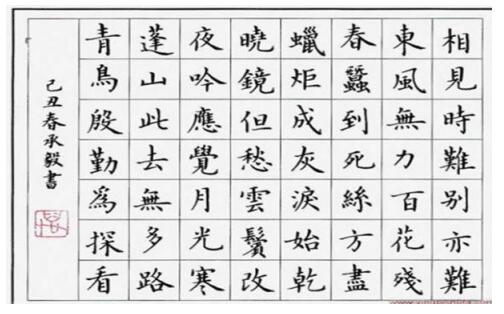 相見時難别亦難
東風無力百花殘
春蠶到死絲方盡
蠟炬成灰淚始乾
曉鏡但愁雲鬢改
夜吟應覺月光寒
蓬山此去無多路
青鳥殷勤為探看
己丑春承毅書